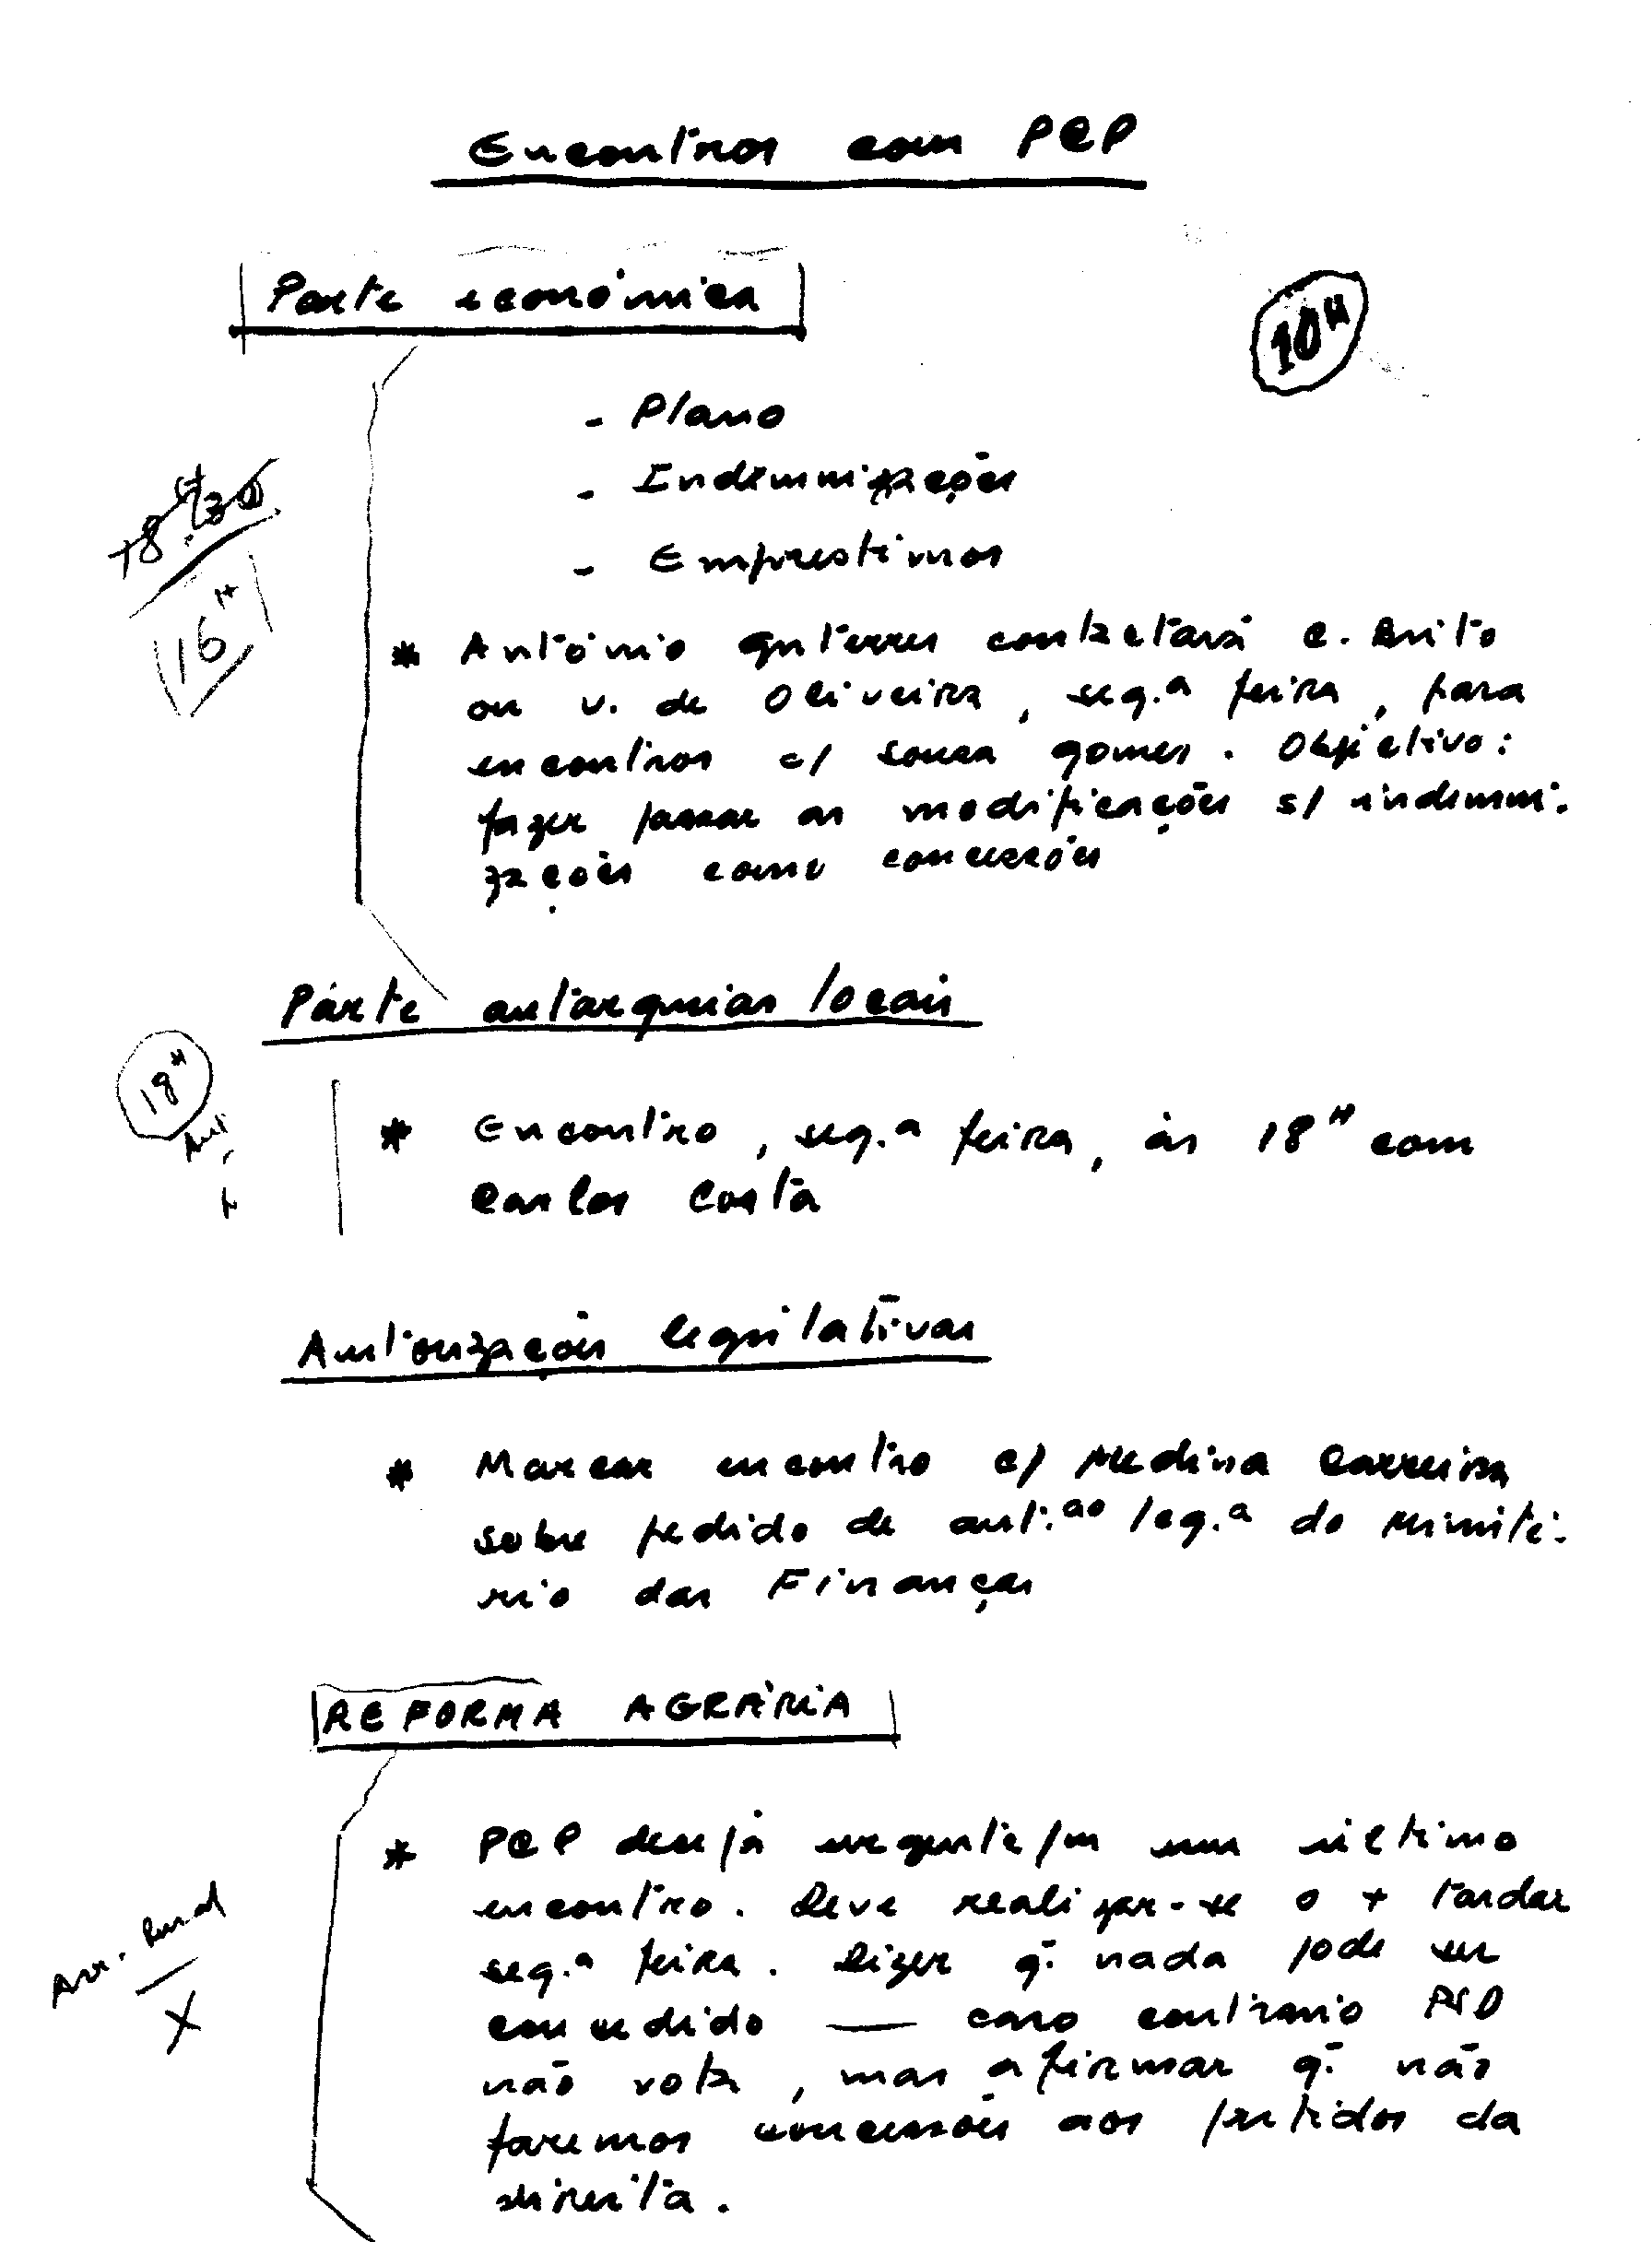 Encontros com PCP
Parte económica
10H
- Plano
- Indemnizações
- Empréstimos
18H.30
16H
* António Guterres contactará C. Brito
ou V. de Oliveira, seg.a feira, para
encontros c/ Sousa Gomes. Objetivo:
fazer passar as modificações s/ indemni-
zações como concessões
Parte autarquias locais
18H
* Encontro, seg.a feira, às 18H com
Carlos Costa
Autorizações legislativas
* Marcar encontro c/ Medina Carreira
sobre pedido de aut.ao leg.a do Ministé-
rio das Finanças
REFORMA AGRÁRIA
Arr. Rural
X
* PCP deseja urgente/m um último
encontro. Deve realizar-se o + tardar
seg.a feira. Dizer q. nada pode ser
concedido — caso contrário PSD
não vota, mas afirmar q. não
faremos concessões aos partidos da
direita.